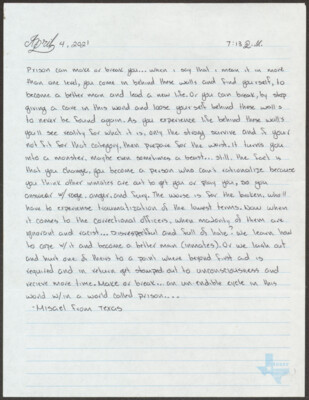 April 4, 2021 7:13 P.M.
Prison can make or break you... when i say that i mean it in more
than one level, you come in behind these walls and find yourself, to
become a better man and lead a new life. Or you can break, by stop
giving a care in this world and loose yourself behind these walls
to never be found again. As you experience life behind these walls
you'll see reality for what it is, only the strong survive and if your
not fit for that category, then prepare for the worst. It turns you
into a monster, maybe even sometimes a beast... still. the fact is
that you change, you become a prison who can't rationalize because
you think other inmates are out to get you or play you, so you
answer w/ rage, anger, and fury. The worse is for the broken who'll
have to experience traumatization of the lowest terms. Now when
it comes to the correctional officers, when majority of them are
ignorant and racist... Disrespectful and full of hate? We learn how
to cope w/ it and become a better man (inmates). Or we lash out
and hurt one of theirs to a point where beyond first aid is
required and in return get stomped out to unconsciousness and
recieve more time. Make or break... an un-endible cycle in this
world w/in a world called prison...
-Misael From Texas